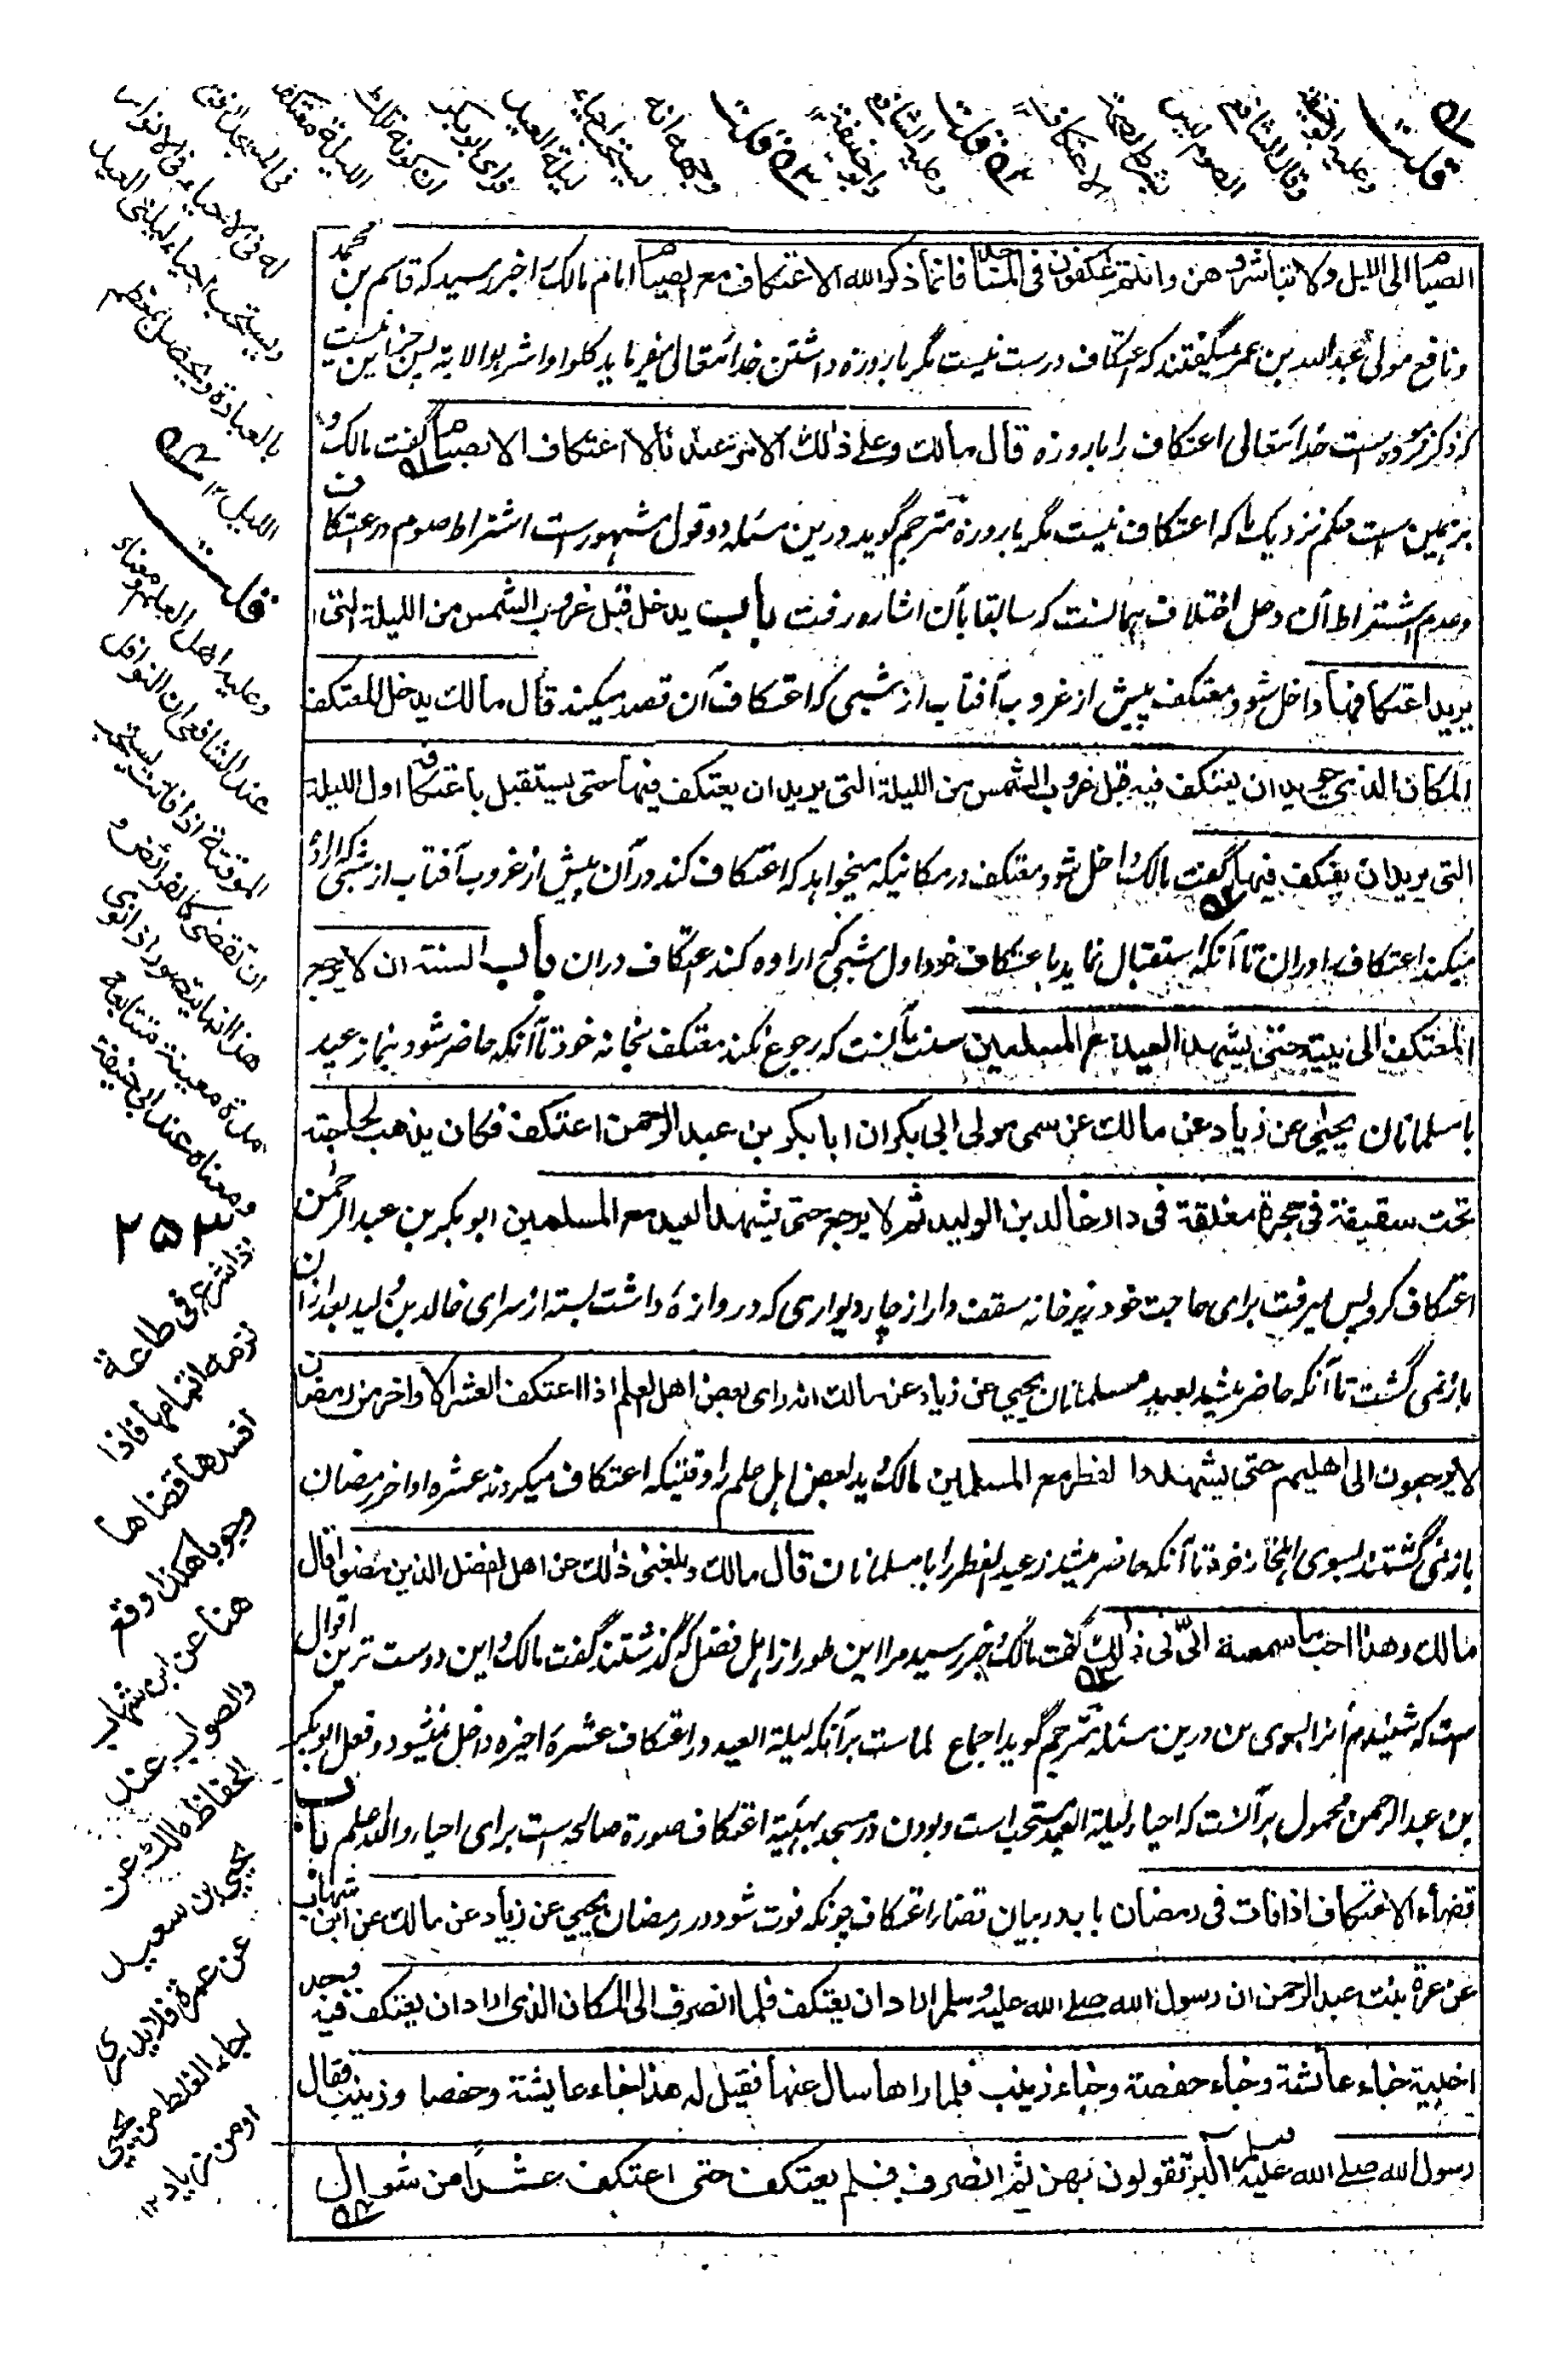 الصيام الى الليل ولا تباشروهن وانتم عاكفون فى المساجد فانما ذكر الله الاعتكاف مع الصيام امام مالك را خبر رسيد كه قاسم بن محمد
ونافع مولى عبد الله بن عمر ميگفتند كه اعتكاف درست نيست مگر با روزه داشتن خدا تعالى ميفرمايد كلوا واشربوا الاية پس جز اين نيست
كه ذكر فرموده است خدا تعالى اعتكاف را با روزه قال مالك وعلى ذلك الامر عندنا لا اعتكاف الا بصيام گفت مالك و
برهمين است حكم نزديك ما كه اعتكاف نيست مگر با روزه مترجم گويد درين مسئله دو قول مشهورست اشتراط صوم در اعتكاف
وعدم اشتراط آن واصل اختلاف همانست كه سابقا بآن اشاره رفت باب يدخل قبل غروب الشمس من الليلة التى
يريد اعتكافها داخل شود معتكف پيش از غروب آفتاب از شبى كه اعتكاف آن قصد ميكند قال مالك يدخل المعتكف
المكان الذى يريد ان يعتكف فيه قبل غروب الشمس من الليلة التى يريد ان يعتكف فيها حتى يستقبل باعتكافه اول الليلة
التى يريد ان يعتكف فيها گفت مالك داخل شود معتكف در مكانيكه ميخواهد كه اعتكاف كند در آن پيش از غروب آفتاب از شبى كه اراده
ميكند اعتكاف را دران تا آنكه استقبال نمايد باعتكاف خود اول شبى كه اراده كند اعتكاف دران باب السنة ان لا يرجع
المعتكف الى بيته حتى يشهد العيد مع المسلمين سنت آنست كه رجوع نكند معتكف بخانه خود تا آنكه حاضر شود بنماز عيد
با مسلمانان يحيى عن زياد عن مالك عن سمى مولى ابى بكر ان ابا بكر بن عبد الرحمن اعتكف فكان يذهب لحاجته
تحت سقيفة فى حجرة مغلقة فى دار خالد بن الوليد ثم لا يرجع حتى يشهد العيد مع المسلمين ابو بكر بن عبد الرحمن
اعتكاف كرد پس ميرفت براى حاجت خود زير خانه سقف دار از چار ديوارى كه دروازه داشت بسته از سراى خالد بن وليد بعد ازان
باز نمى گشت تا آنكه حاضر ميشد بعيد مسلمانان يحيى عن زياد عن مالك انه راى بعض اهل العلم اذا اعتكف العشر الاواخر من رمضان
لا يرجعون الى اهليهم حتى يشهدوا الفطر مع المسلمين مالك ديد بعض اهل علم را وقتيكه اعتكاف ميكردند عشره اواخر رمضان
باز نمى گشتند بسوى اهل خانه خود تا آنكه حاضر ميشدند عيد الفطر را با مسلمانان قال مالك وبلغنى ذلك عن اهل الفضل الذين مضوا قال
مالك وهذا احب ما سمعت الىّ فى ذلك گفت مالك خبر رسيد مرا اين طور از اهل فضل كه گذشتند گفت مالك اين دوست ترين اقوال
است كه شنيدم آنرا بسوى من درين مسئله مترجم گويد اجماع علماست برآنكه ليلة العيد در اعتكاف عشرۀ اخيره داخل نميشود وفعل ابو بكر
بن عبد الرحمن محمول برآنست كه احياء ليلة العيد مستحب است وبودن در مسجد بهيئة اعتكاف صورة صالحه است براى احياء والله اعلم باب
قضاء الاعتكاف اذا فات فى رمضان باب در بيان قضاء اعتكاف چونكه فوت شود در رمضان يحيى عن زياد عن مالك عن ابن شهاب
عن عمرة بنت عبد الرحمن ان رسول الله صلى الله عليه وسلم اراد ان يعتكف فلما انصرف الى المكان الذى اراد ان يعتكف فيه فوجد
اخبية خباء عائشة وخباء حفصة وخباء زينب فلما راها سال عنها فقيل له هذا خباء عايشة وحفصا وزينب فقال
رسول الله صلى الله عليه وسلم آلبر تقولون بهن ثم انصرف فلم يعتكف حتى اعتكف عشرا من شوال
قلت
وعليه ابو حنيفة
وقال الشافعى
الصوم ليس
بشرط لصحة
الاعتكاف
قلت
وعليه الشافعى
وابو حنيفة
قلت
وجهه انه
يستحب احياء
ليلة العيد
فراى ابو بكر
ان كونه تلك
الليلة معتكفا
فى المسجد
ويستحب احياء ليلتى العيد
بالعبادة ويحصل بمعظم
الليل ١٢
قلت
وعليه اهل العلم ومعناه
عند الشافعى ان النوافل
الموقتة اذا فاتت يستحب
ان تقضى كالفرائض و
هذا انما يتصور اذا نوى
مدة معينة متتابعة
ومعناه عند ابى حنيفة
٢٥٣
اذا شرع فى طاعة
لزمه اتمامها فاذا
افسدها قضاها
وجوبا هكذا وقع
هنا عن ابن شهاب
والصواب عند
الحفاظ مالك عن
يحيى بن سعيد
عن عمرة فلا يدرى
اجاء الغلط من يحيى
او من زياد ١٢